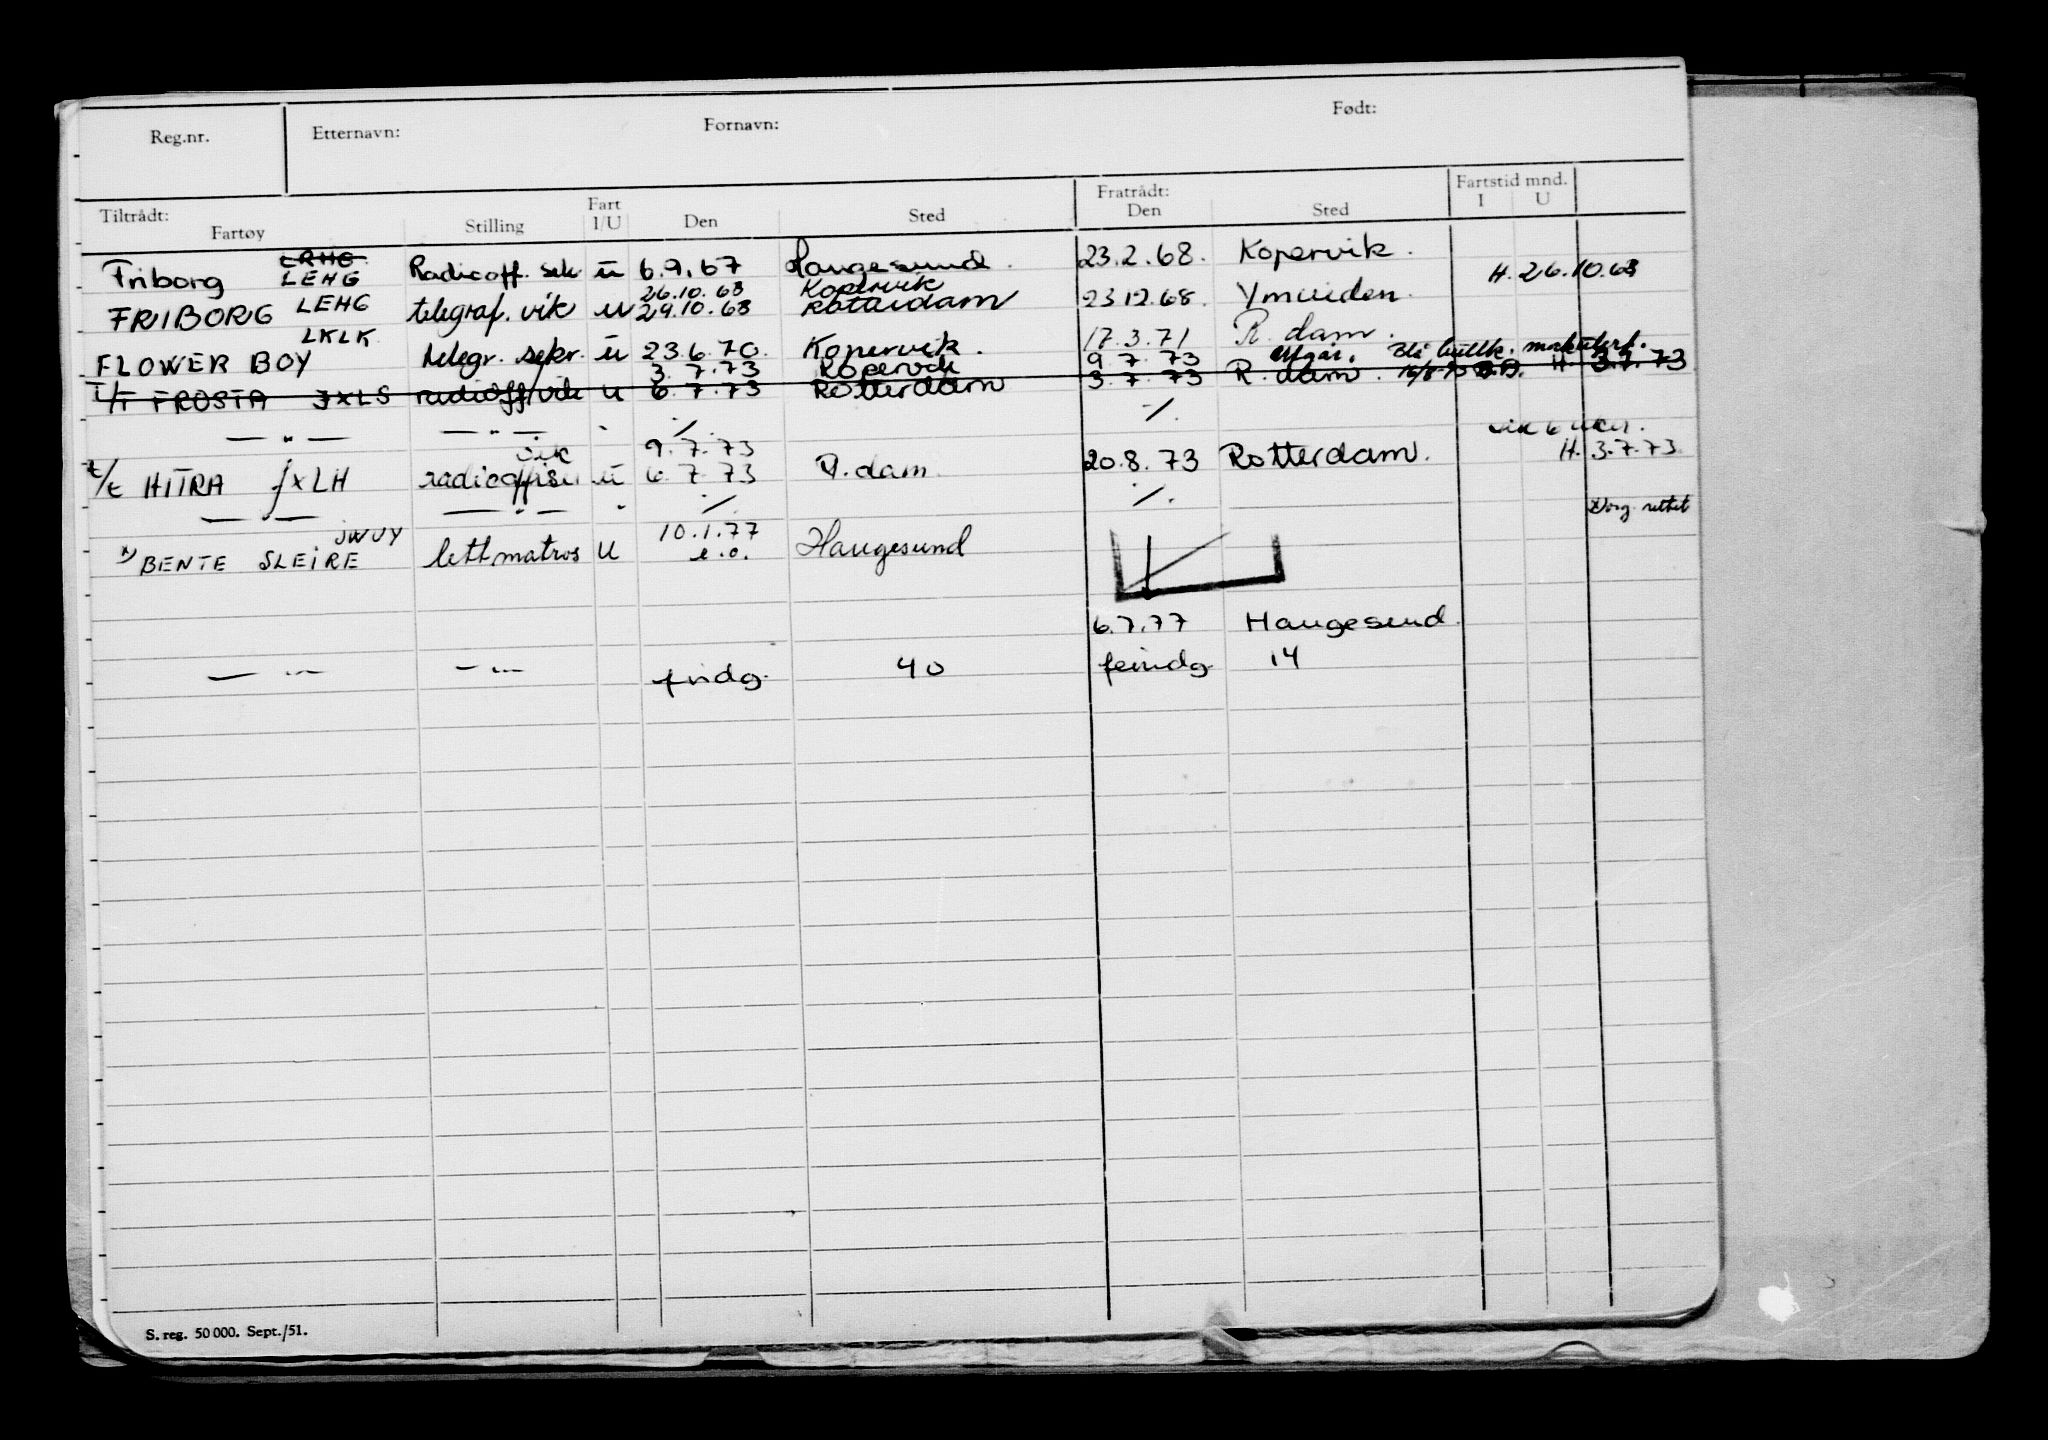 Reg.nr. Etternavn: Fornavn: Født:
Tiltrådt: Fart Fratrådt: Fartstid mnd.
Fartøy Stilling I/U Den Sted Den Sted I U
LRHG
Friborg LEHG Radiooff. sek u 6.9.67 Haugesund. 23.2.68. Kopervik.
26.10.68 Kopervik H. 26.10.68
FRIBORG LEHG telegraf. vik u 29.10.68 Rotterdam 23.12.68. Ymuiden.
LKLK
FLOWER BOY telegr. sekr. u 23.6.70. Kopervik. 17.3.71 R. dam.
3.7.73 Kopervik 9.7.73 utgår. Blå hullk. makulert.
T/T FROSTA JXLS radiooff/vik u 6.7.73 Rotterdam 3.7.73 R. dam. H. 3.7.73
— " — — " — " ./. ./.
vik 9.7.73 vik 6 uker.
t/t HITRA JXLH radiooffiser u 6.7.73 R.dam. 20.8.73 Rotterdam. H. 3.7.73
— " — — " — " ./. ./.
JWUY 10.1.77 x) org. rettet
x) BENTE SLEIRE lettmatros U e.o. Haugesund
6.7.77 Haugesund.
— " — — " — fridg. 40 feridg. 14
S. reg. 50 000. Sept./51.